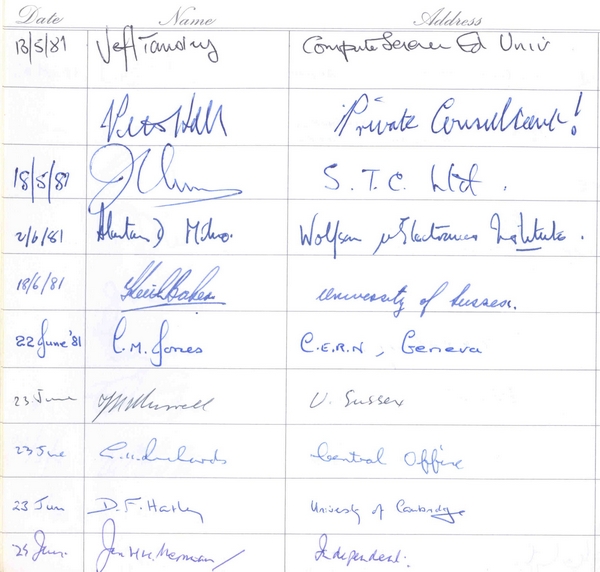 Date Name Address
13/5/81 Jeff Tansley Computer Science Ed Univ
Peter Hall Private Consultant!
18/5/81 S.T.C. Ltd.
2/6/81 Alastair D Milne. Wolfson μElectronics Institute.
18/6/81 Keith Baker University of Sussex.
22 June '81 C.M. Jones C.E.R.N, Geneva
23 June U. Sussex
23 June Richards Central Office
23 Jun D.F. Hartley University of Cambridge
24 Jun. Norman Independent.